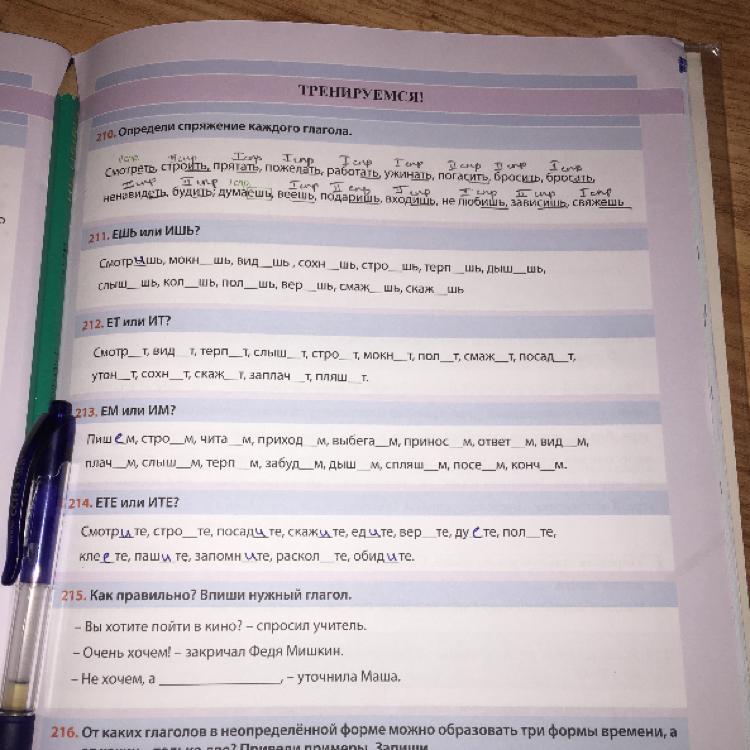 ТРЕНИРУЕМСЯ!
210. Определи спряжение каждого глагола.
I спр II спр I спр I спр I спр I спр II спр II спр I спр
Смотреть, строить, прятать, пожелать, работать, ужинать, погасить, бросить, бросать,
II спр II спр I спр I спр II спр I спр I спр II спр I спр
ненавидеть, будить, думаешь, веешь, подаришь, входишь, не любишь, зависишь, свяжешь
211. ЕШЬ или ИШЬ?
Смотришь, мокн__шь, вид__шь, сохн__шь, стро__шь, терп__шь, дыш__шь,
слыш__шь, кол__шь, пол__шь, вер__шь, смаж__шь, скаж__шь
212. ЕТ или ИТ?
Смотр__т, вид__т, терп__т, слыш__т, стро__т, мокн__т, пол__т, смаж__т, посад__т,
утон__т, сохн__т, скаж__т, заплач__т, пляш__т.
213. ЕМ или ИМ?
Пишем, стро__м, чита__м, приход__м, выбега__м, принос__м, ответ__м, вид__м,
плач__м, слыш__м, терп__м, забуд__м, дыш__м, спляш__м, посе__м, конч__м.
214. ЕТЕ или ИТЕ?
Смотрите, стро__те, посадите, скажите, едите, вер__те, дуете, пол__те,
клеете, пашите, запомните, раскол__те, обидите.
215. Как правильно? Впиши нужный глагол.
– Вы хотите пойти в кино? – спросил учитель.
– Очень хочем! – закричал Федя Мишкин.
– Не хочем, а ____________________, – уточнила Маша.
216. От каких глаголов в неопределённой форме можно образовать три формы времени, а
только две? Приведи примеры. Запиши.